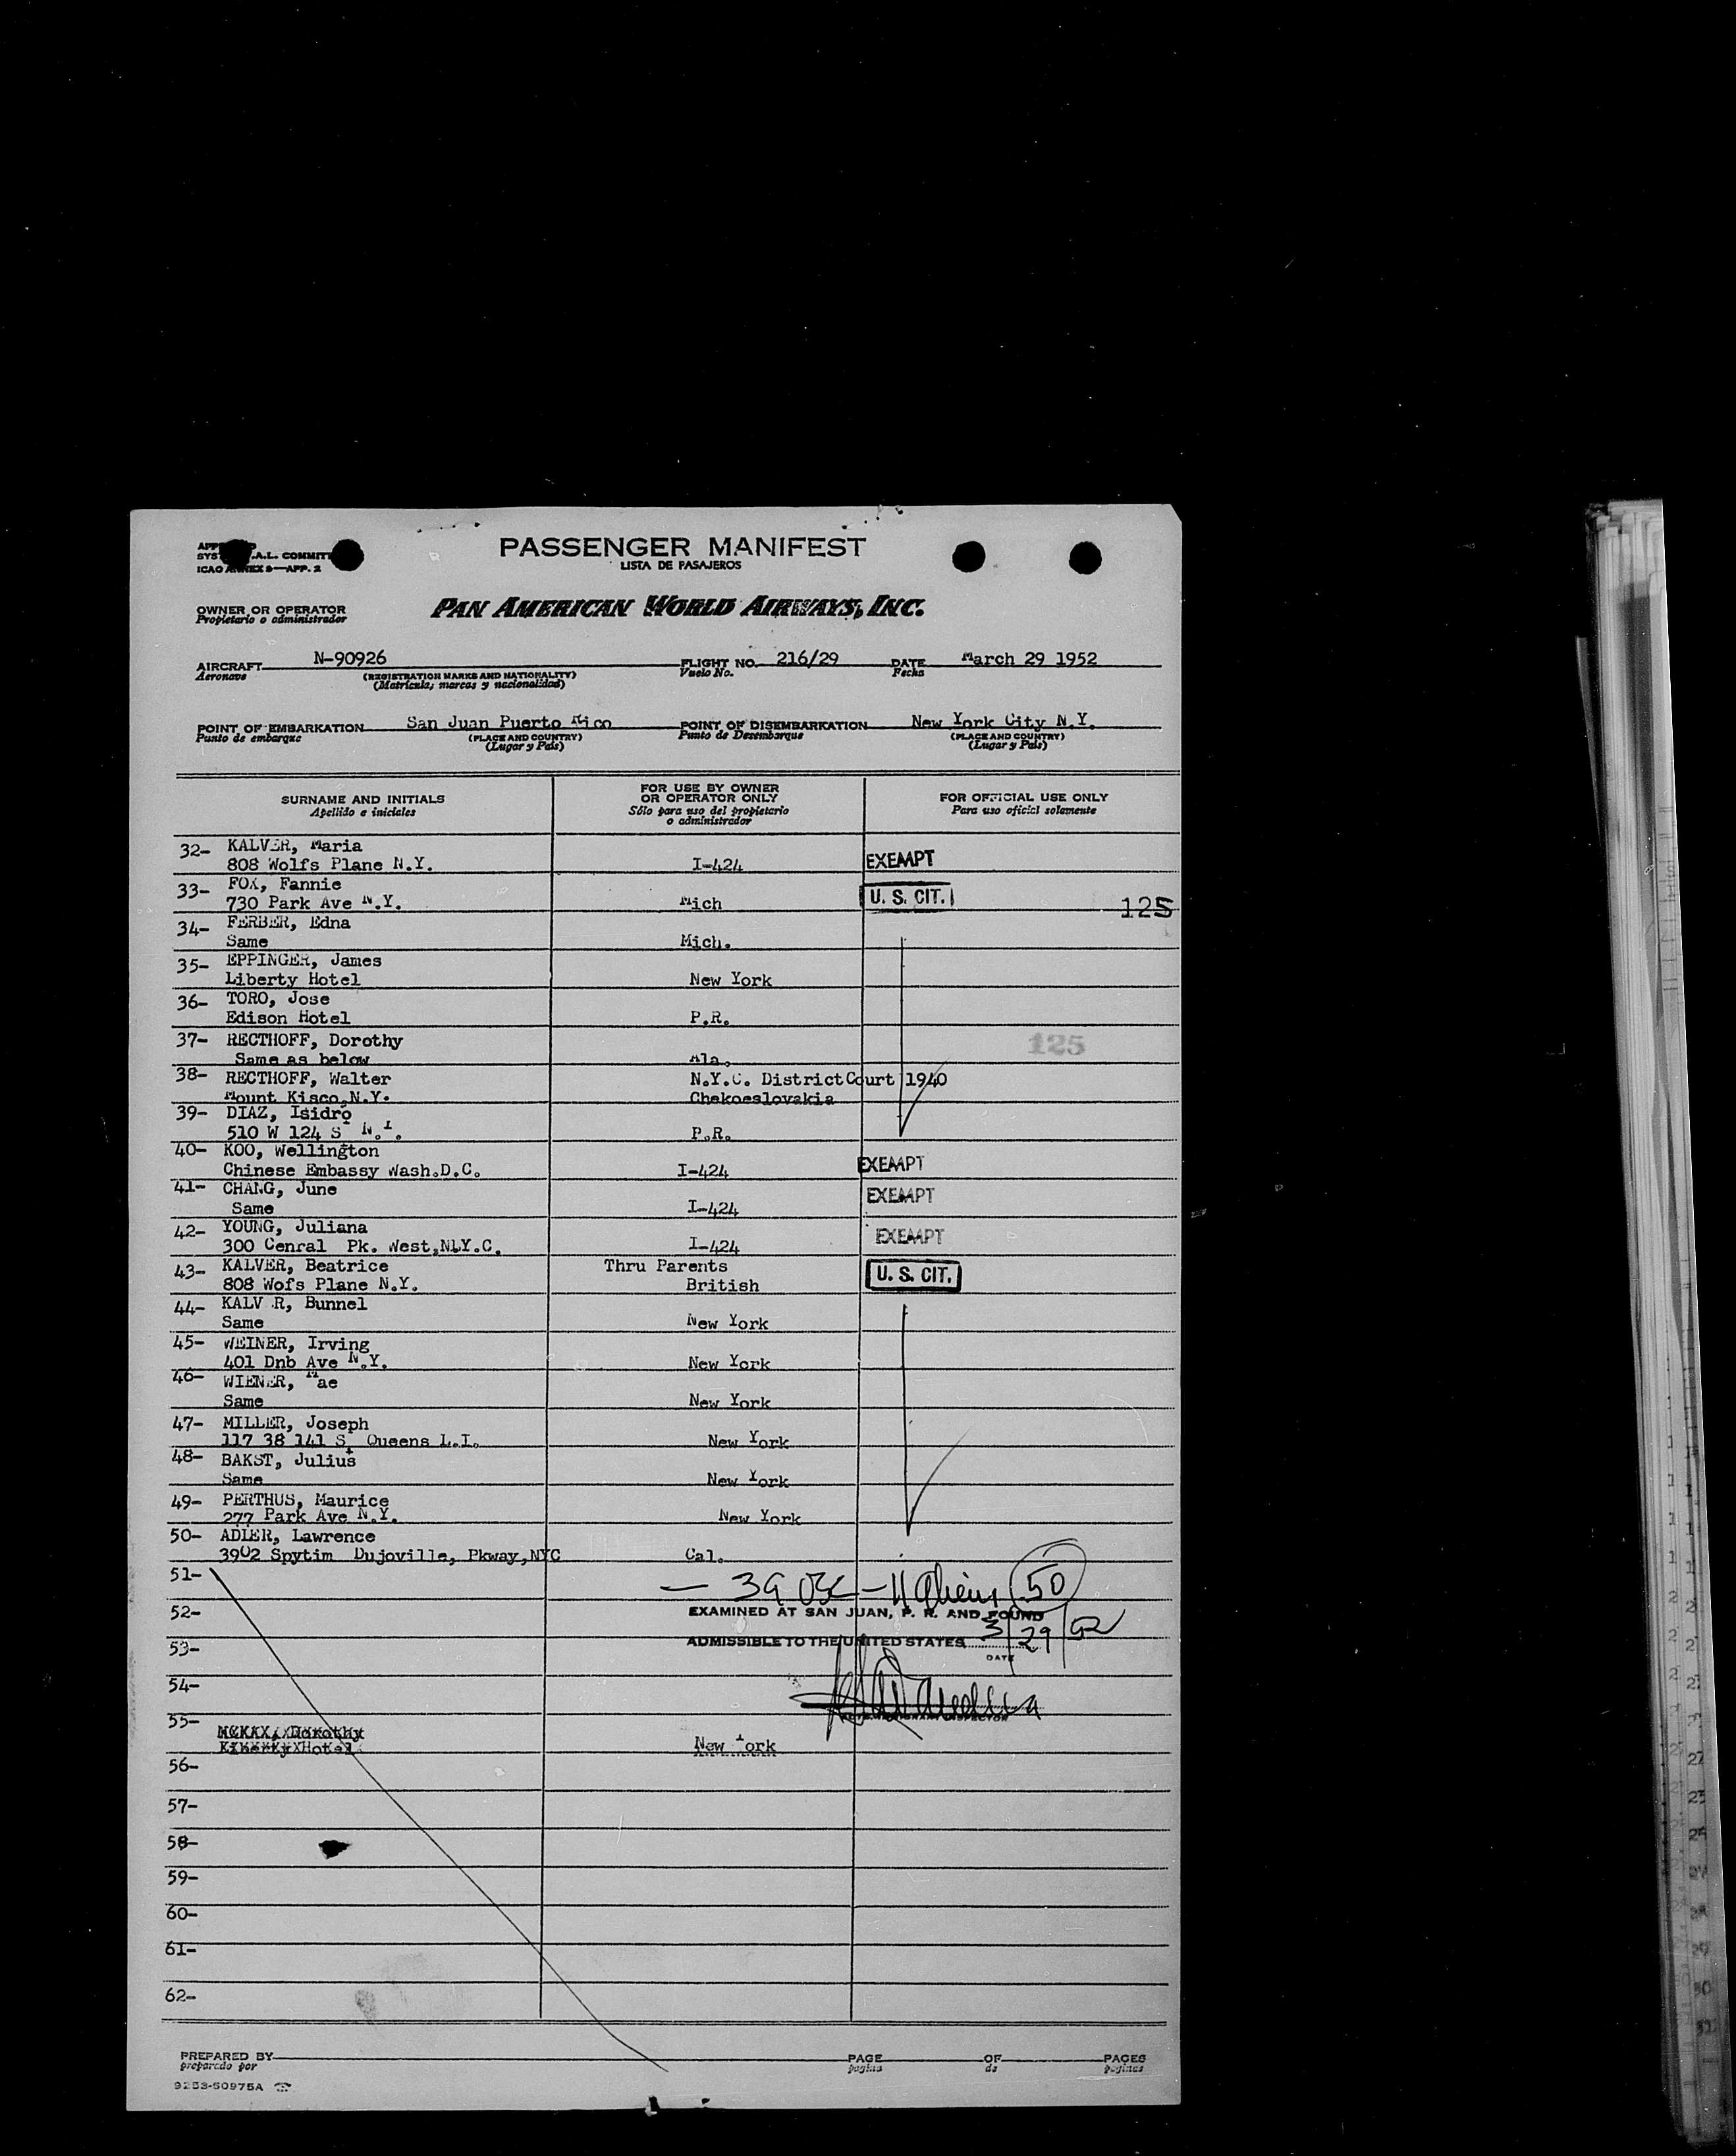 PASSENGER MANIFEST
LISTA DE PASAJEROS
ICAO ANNEX 9—APP. 2
OWNER OR OPERATOR
Propietario o administrador
PAN AMERICAN WORLD AIRWAYS, INC.
AIRCRAFT N-90926 FLIGHT NO. 216/29 DATE March 29 1952
Aeronave (REGISTRATION MARKS AND NATIONALITY) Vuelo No. Fecha
(Matricula; marcas y nacionalidad)
POINT OF EMBARKATION San Juan Puerto Rico POINT OF DISEMBARKATION New York City N.Y.
Punto de embarque (PLACE AND COUNTRY) Punto de Desembarque (PLACE AND COUNTRY)
(Lugar y País) (Lugar y País)
SURNAME AND INITIALS
Apellido e iniciales
FOR USE BY OWNER
OR OPERATOR ONLY
Sólo para uso del propietario
o administrador
FOR OFFICIAL USE ONLY
Para uso oficial solamente
32- KALVER, Maria
808 Wolfs Plane N.Y. I-424 EXEMPT
33- FOX, Fannie
730 Park Ave N.Y. Mich U. S. CIT. 125
34- FERBER, Edna
Same Mich.
35- EPPINGER, James
Liberty Hotel New York
36- TORO, Jose
Edison Hotel P.R.
37- RECTHOFF, Dorothy
Same as below Ala. 125
38- RECTHOFF, Walter N.Y.C. District Court 1940
Mount Kisco,N.Y. Chekoeslovakia
39- DIAZ, Isidro
510 W 124 St N.Y. P.R.
40- KOO, Wellington
Chinese Embassy Wash.D.C. I-424 EXEMPT
41- CHANG, June
Same I-424 EXEMPT
42- YOUNG, Juliana
300 Cenral Pk. West,N.Y.C. I-424 EXEMPT
43- KALVER, Beatrice Thru Parents
808 Wofs Plane N.Y. British U. S. CIT.
44- KALV R, Bunnel
Same New York
45- WEINER, Irving
401 Dnb Ave N.Y. New York
46- WIENER, Mae
Same New York
47- MILLER, Joseph
117 38 141 St Queens L.I. New York
48- BAKST, Julius
Same New York
49- PERTHUS, Maurice
277 Park Ave N.Y. New York
50- ADLER, Lawrence
3902 Spytim Dujoville, Pkway,NYC Cal.
51- — 39 USC – 11 Aliens 50
52- EXAMINED AT SAN JUAN, P. R. AND FOUND
53- ADMISSIBLE TO THE UNITED STATES 3/29/52
DATE
54-
55-
Dorothy
Hotel New York
56-
57-
58-
59-
60-
61-
62-
PREPARED BY PAGE OF PAGES
preparado por pagina de paginas
9253-50975A